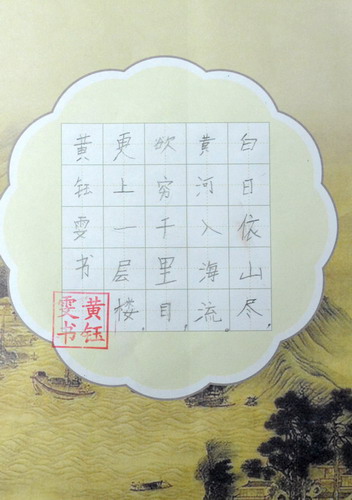 白日依山尽，
黄河入海流。
欲穷千里目，
更上一层楼。
黄钰雯书
黄钰雯书